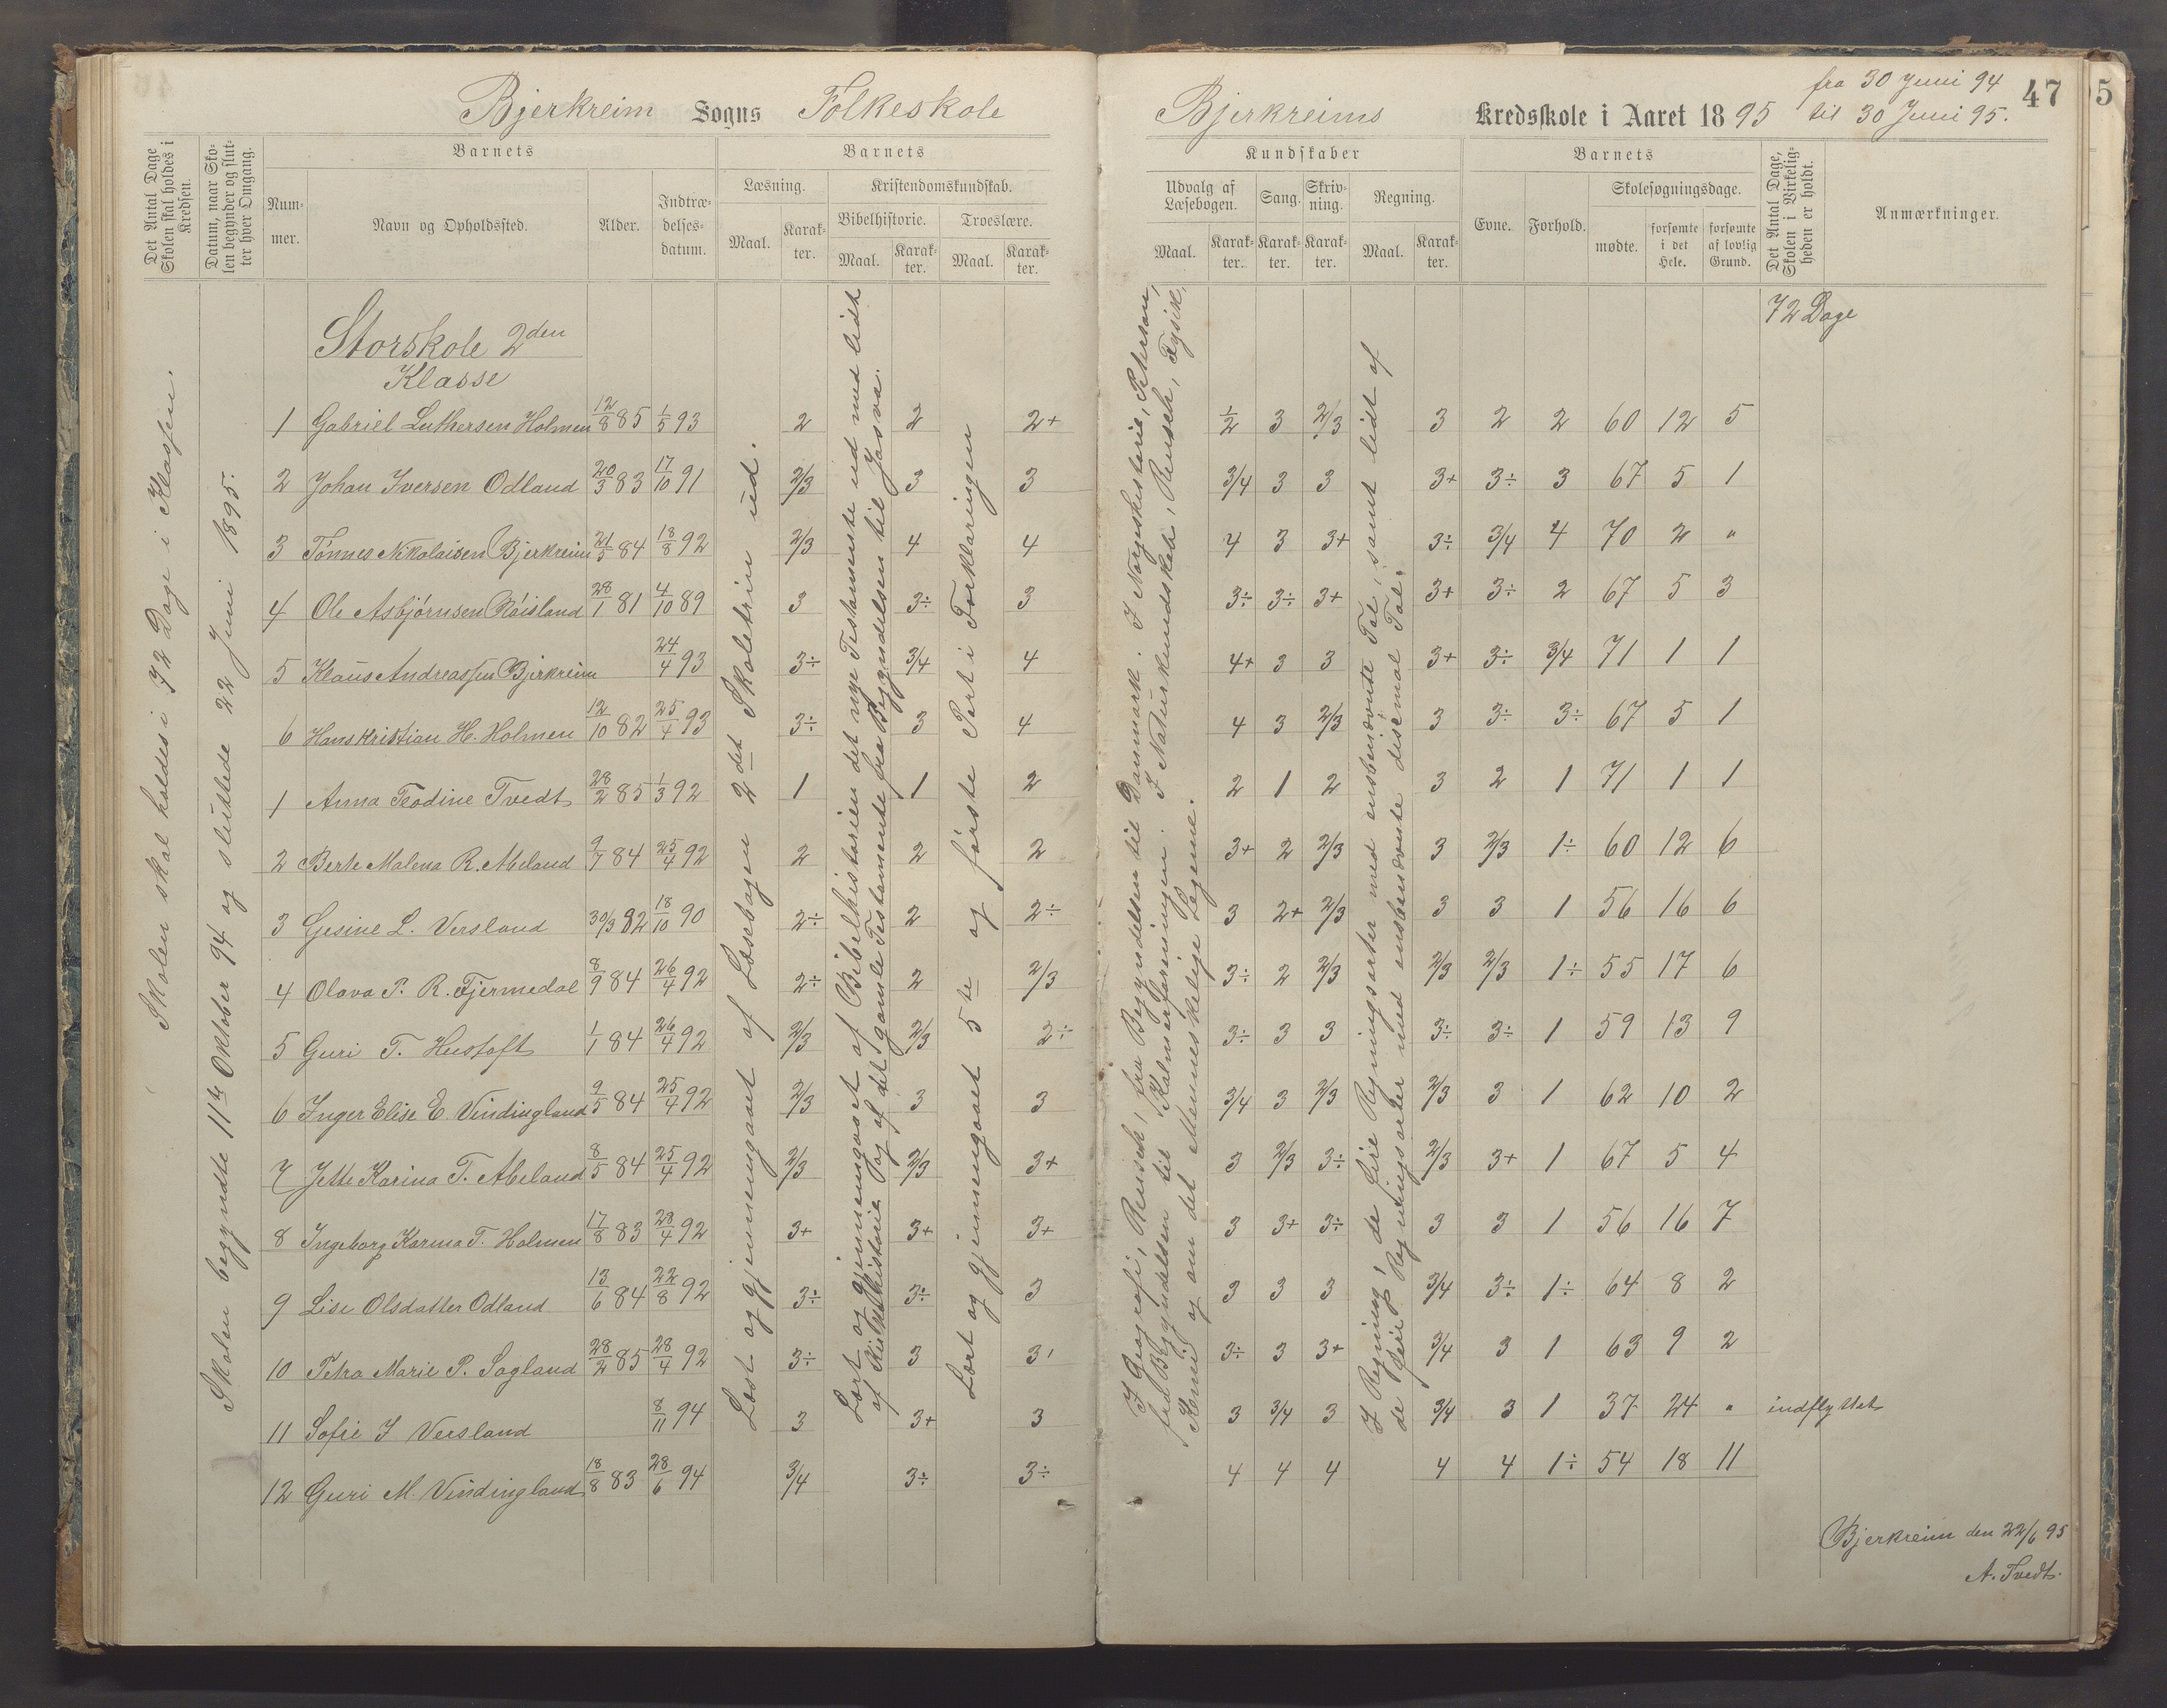 Bjerkreim Sogns Folkeskole
Det Antal Dage Skolen skal holdes i Kredsen.
Datum, naar Skolen begynder og slutter hver Omgang.
Barnets
Nummer.
Navn og Opholdssted.
Alder.
Indtrædelsesdatum.
Barnets
Læsning.
Maal.
Karakter.
Kristendomskundskab.
Bibelhistorie.
Maal.
Karakter.
Troeslære.
Maal.
Karakter.
Skolen skal holdes i 72 Dage i Klassen.
Skolen begyndte 11te Oktober 94 og sluttede 22 Juni 1895.
Storskole 2den
Klasse
Læst og gjennemgaaet af Læsebogen 2det Skoletrin ud.
Lært og gjennemgaaet af Bibelhistorien det nye Testamente ud med lidt
af Kirkehistorie og af det gamle Testamente fra Begyndelsen til Josva.
Lært og gjennemgaaet 5te og første Part i Forklaringen
1 Gabriel Luthersen Holmen 12/8 85 1/5 93 2 2 2+
2 Johan Iversen Odland 20/3 83 17/10 91 2/3 3 3
3 Tönnes Nikolaisen Bjerkreim 21/5 84 18/8 92 2/3 4 4
4 Ole Asbjörnsen Röisland 28/1 81 4/10 89 3 3÷ 3
5 Klaus Andreassen Bjerkreim 24/4 93 3÷ 3/4 4
6 Hans Kristian H. Holmen 12/10 82 25/4 93 3÷ 3 4
1 Anna Teodine Tvedt 28/2 85 1/3 92 1 1 2
2 Berte Malena R. Abeland 9/7 84 25/4 92 2 2 2
3 Gesine L. Versland 30/3 82 18/10 90 2÷ 2 2÷
4 Olava P. R. Fjermedal 8/9 84 26/4 92 2÷ 2 2/3
5 Guri T. Hustoft 1/1 84 26/4 92 2/3 2/3 2÷
6 Inger Elise E. Vindingland 9/5 84 25/4 92 2/3 3 3
7 Jette Karina T. Abeland 8/5 84 25/4 92 2/3 2/3 3+
8 Ingeborg Karina T. Holmen 17/8 83 28/4 92 3+ 3+ 3+
9 Lise Olsdatter Odland 13/6 84 22/8 92 3÷ 3÷ 3
10 Petra Marie P. Sagland 28/2 85 28/4 92 3÷ 3 3
11 Sofie I Versland 8/11 94 3 3+ 3
12 Guri M. Vindingland 18/8 83 28/6 94 3/4 3÷ 3÷
Bjerkreims Kredsskole i Aaret 1895
fra 30 Juni 94
til 30 Juni 95.
47
5
Kundskaber
Udvalg af Læsebogen.
Maal.
Karakter.
Sang.
Karakter.
Skrivning.
Karakter.
Regning.
Maal.
Karakter.
Barnets
Evne.
Forhold.
Skolesøgningsdage.
mødte.
forsømte i det Hele.
forsømte af lovlig Grund.
Det Antal Dage, Skolen i Virkeligheden er holdt.
Anmærkninger.
72 Dage
I Geografi, Reusch, fra Begyndelsen til Danmark. I Norgeshistorie, Petersen,
fra Begyndelsen til Kalmarforeningen. I Naturkundskab, Reusch, Fysik,
Kemi og om det Menneskelige Legeme.
I Regning, de fire Regningsarter med ensbenævnte Tal, samt lidt af
de fire Regningsarter med ensbenævnte disemal Tal.
1/2 3 2/3 3 2 2 60 12 5
3/4 3 3 3+ 3÷ 3 67 5 1
4 3 3+ 3÷ 3/4 4 70 2 "
3÷ 3÷ 3+ 3+ 3÷ 2 67 5 3
4+ 3 3 3+ 3÷ 3/4 71 1 1
4 3 2/3 3 3÷ 3÷ 67 5 1
2 1 2 3 2 1 71 1 1
3+ 2 2/3 3 2/3 1÷ 60 12 6
3 2+ 2/3 3 3 1 56 16 6
3÷ 2 2/3 2/3 2/3 1÷ 55 17 6
3÷ 3 3 3÷ 3÷ 1 59 13 9
3/4 3 2/3 2/3 3 1 62 10 2
3 2/3 3÷ 2/3 3+ 1 67 5 4
3 3+ 3÷ 3 3 1 56 16 7
3 3 3 3/4 3÷ 1÷ 64 8 2
3÷ 3 3+ 3/4 3 1 63 9 2
3 3/4 3 3/4 3 1 37 24 " indflyttet
4 4 4 4 4 1÷ 54 18 11
Bjerkreim den 22/6 95
A. Tvedt.